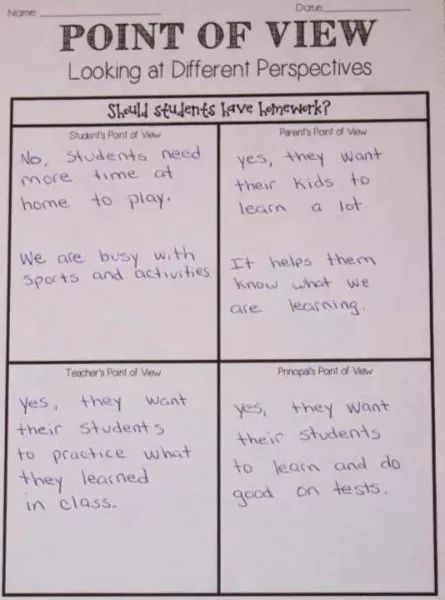 Name
Date
POINT OF VIEW
Looking at Different Perspectives
Should students have homework?
Student's Point of View
No, students need
more time at
home to play.
We are busy with
sports and activities
Parent's Point of View
yes, they want
their kids to
learn a lot.
It helps them
know what we
are learning.
Teacher's Point of View
yes, they want
their students
to practice what
they learned
in class.
Principal's Point of View
yes, they want
their students
to learn and do
good on tests.